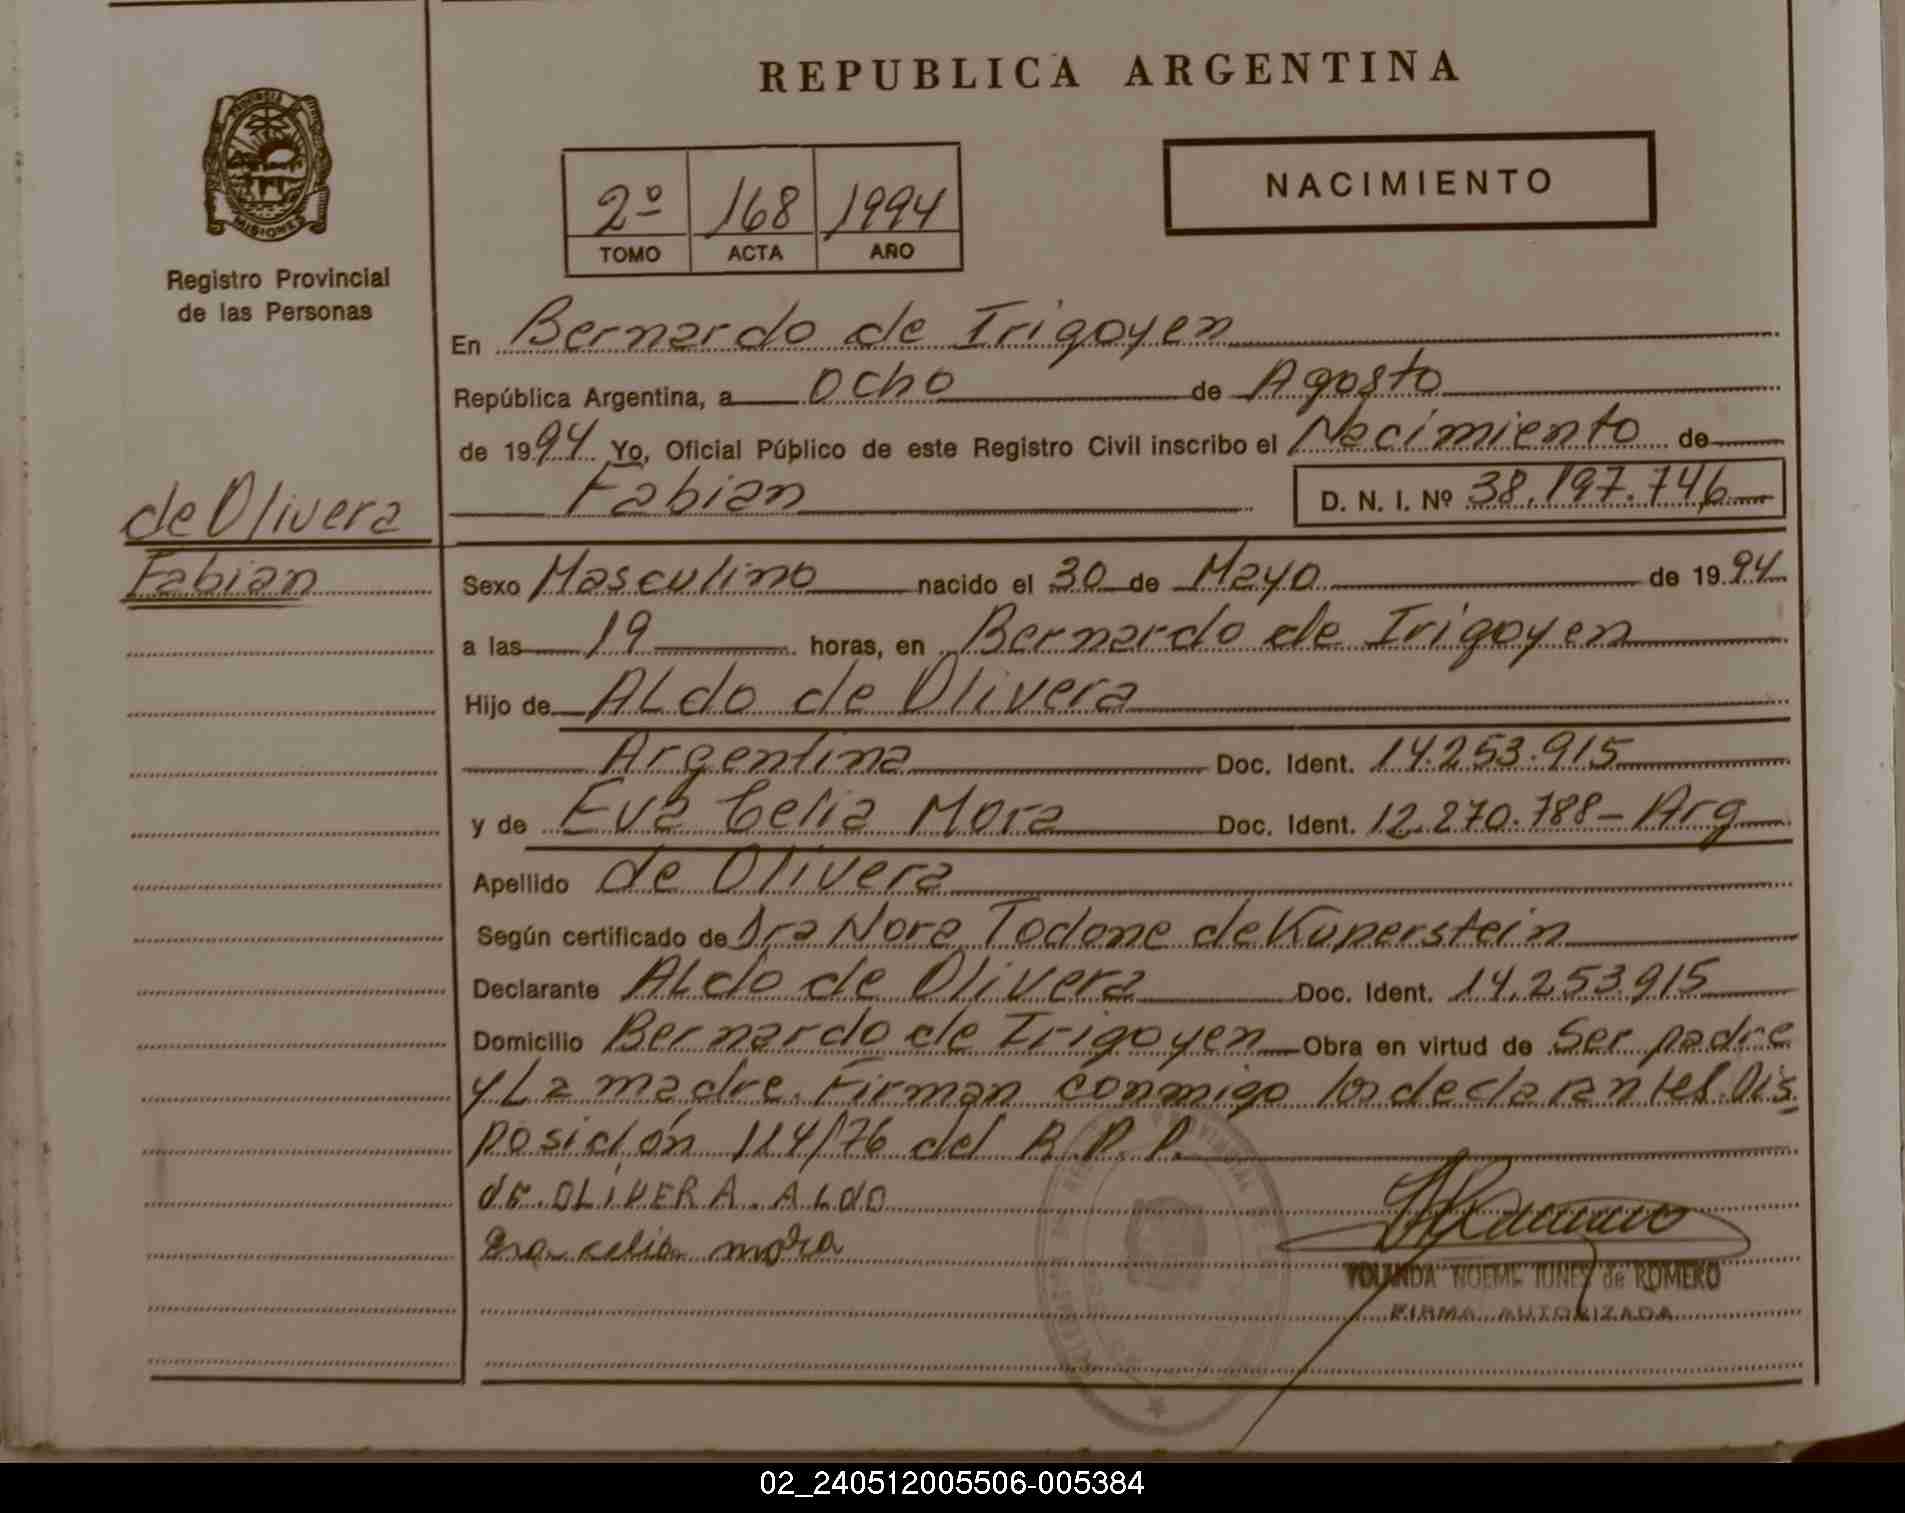 REPUBLICA ARGENTINA
NACIMIENTO
2º 168 1994
TOMO ACTA AÑO
MISIONES
Registro Provincial
de las Personas
de Olivera
Fabian
En Bernardo de Irigoyen
República Argentina, a ocho de Agosto
de 1994 Yo, Oficial Público de este Registro Civil inscribo el Nacimiento de
Fabian D. N. I. Nº 38.197.746
Sexo Masculino nacido el 30 de Mayo de 1994
a las 19 horas, en Bernardo de Irigoyen
Hijo de ALdo de Olivera
Argentina Doc. Ident. 14.253.915
y de Eva Celia Mora Doc. Ident. 12.270.788- Arg
Apellido de Olivera
Según certificado de Dra Nora Todone de Kuperstein
Declarante ALdo de Olivera Doc. Ident. 14.253.915
Domicilio Bernardo de Irigoyen Obra en virtud de Ser padre
y La madre. Firman conmigo los declarantes. Dis
posición 114/76 del R.P.P.
de OLIVERA. ALDO
Eva celia mora
YOLANDA NOEMI IUNES de ROMERO
FIRMA AUTORIZADA
02_240512005506-005384